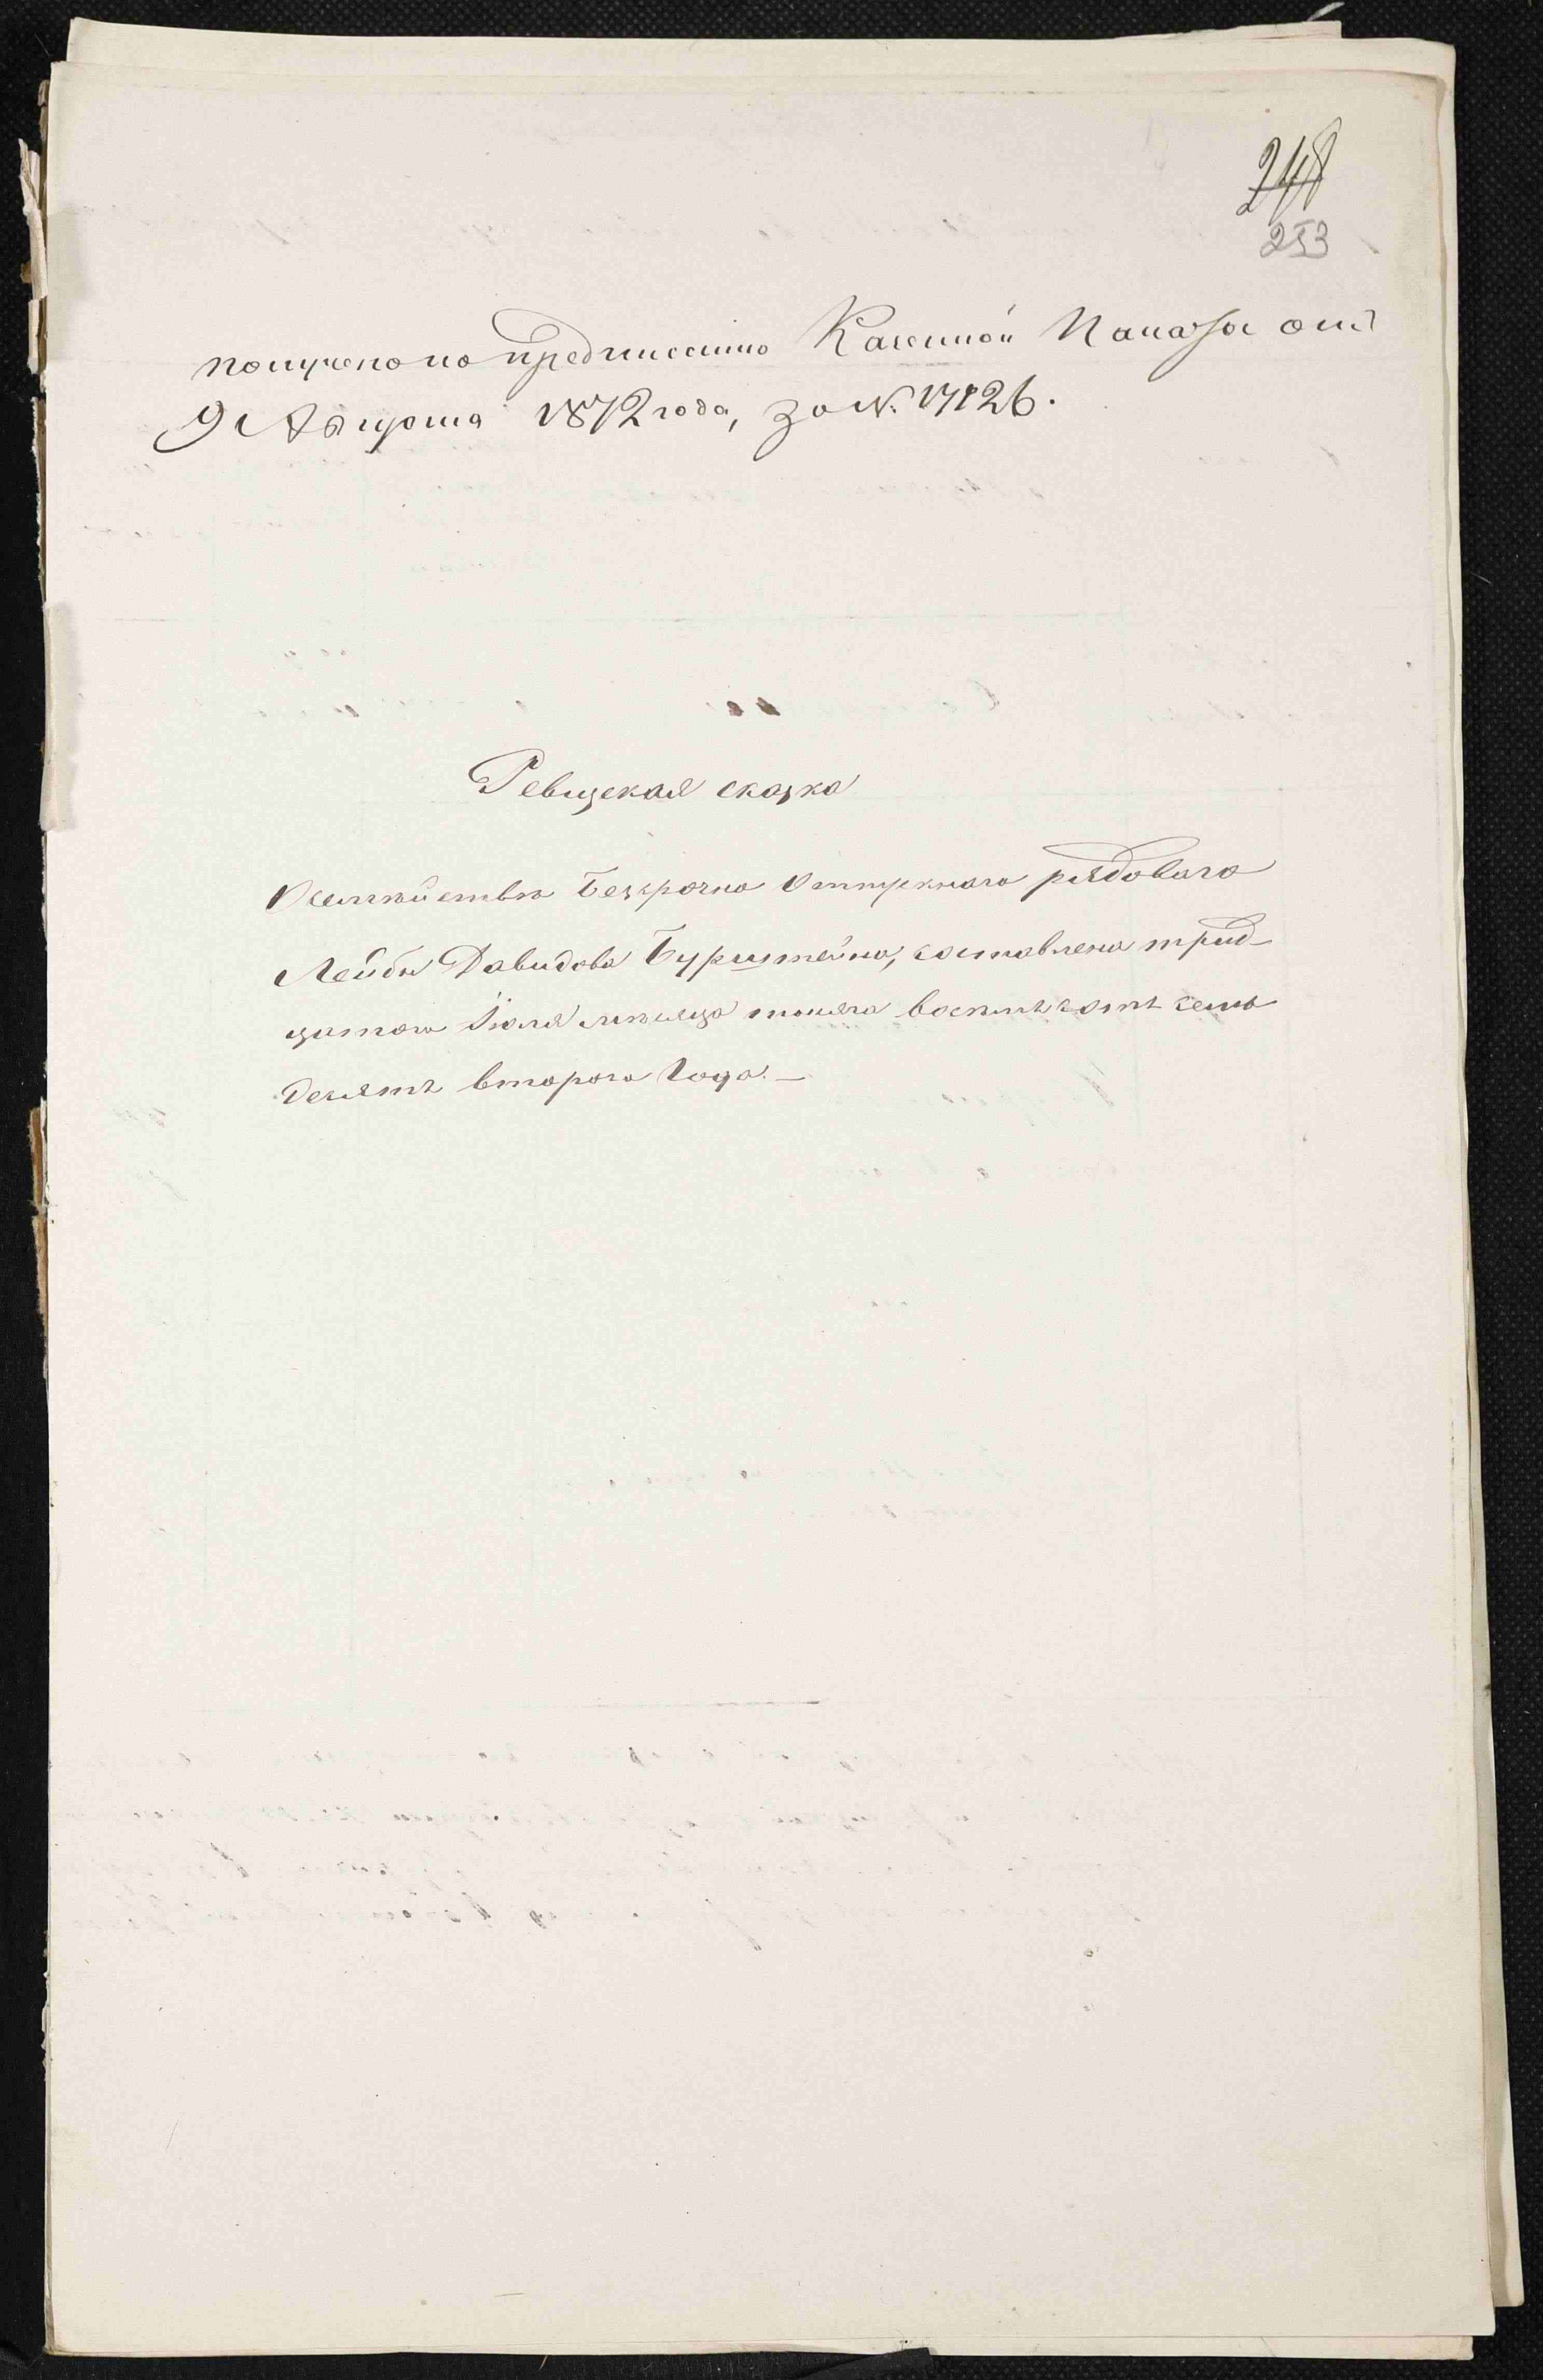 248
253
получено по предписанію Казенной Палаты отъ
9 Августа 1872 года, за №. 17126.
Ревизская сказка
О семѣйствѣ безсрочно отпускнаго рядоваго
Лейбы Давидова Бурштейна, составлена трид-
цатаго Іюля мѣсяца тысяча восемьсотъ семь
десятъ втораго года.—